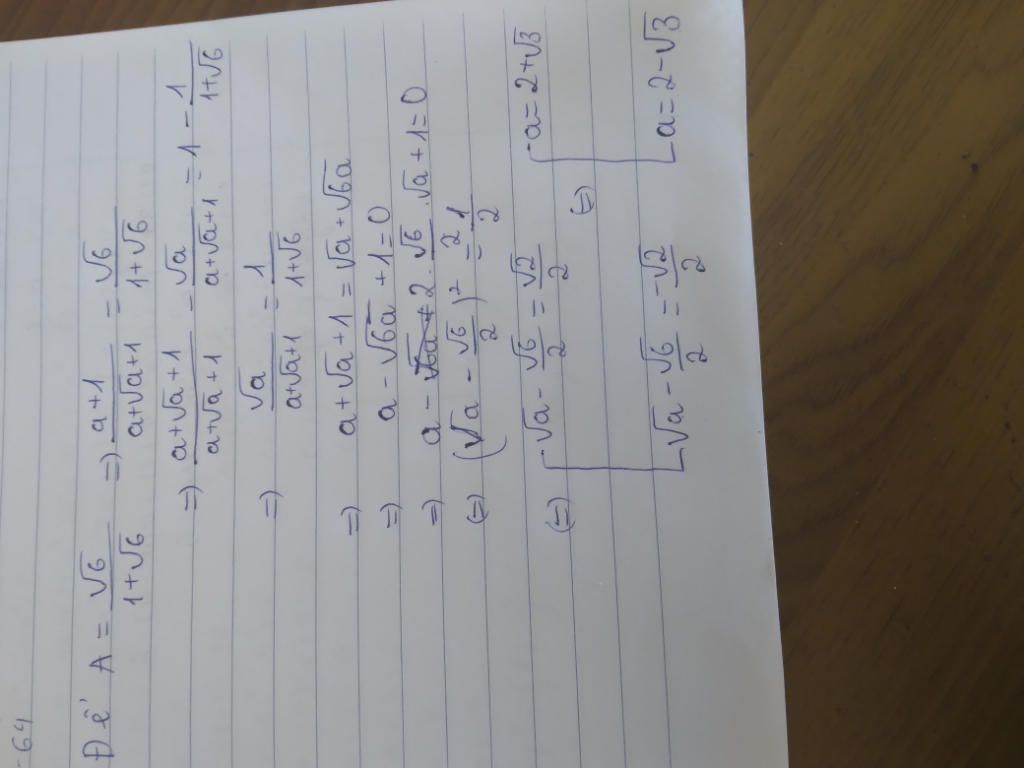 64
Để A = √6/(1+√6) => (a+1)/(a+√a+1) = √6/(1+√6)
=> (a+√a+1)/(a+√a+1) - √a/(a+√a+1) = 1 - 1/(1+√6)
=> √a/(a+√a+1) = 1/(1+√6)
=> a+√a+1 = √a+√6a
=> a - √6a + 1 = 0
=> a - 2.√6/2.√a + 1 = 0
(=) (√a - √6/2)² = 1/2
(=) [ √a - √6/2 = √2/2 (=) [ a = 2+√3
√a - √6/2 = -√2/2 a = 2-√3